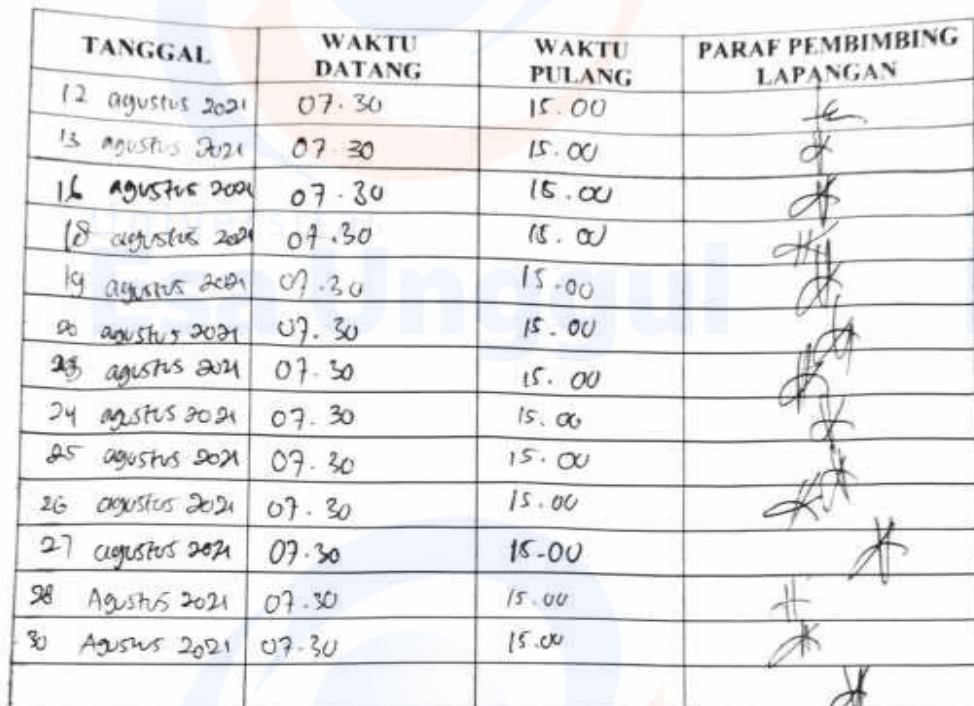 TANGGAL WAKTU DATANG WAKTU PULANG PARAF PEMBIMBING LAPANGAN
12 agustus 2021 07.30 15.00
13 agustus 2021 07.30 15.00
16 agustus 2021 07.30 15.00
18 agustus 2021 07.30 15.00
19 agustus 2021 07.30 15.00
20 agustus 2021 07.30 15.00
23 agustus 2021 07.30 15.00
24 agustus 2021 07.30 15.00
25 agustus 2021 07.30 15.00
26 agustus 2021 07.30 15.00
27 agustus 2021 07.30 15-00
28 Agustus 2021 07.30 15.00
30 Agustus 2021 07-30 15.00
Universitas
Esa Unggul